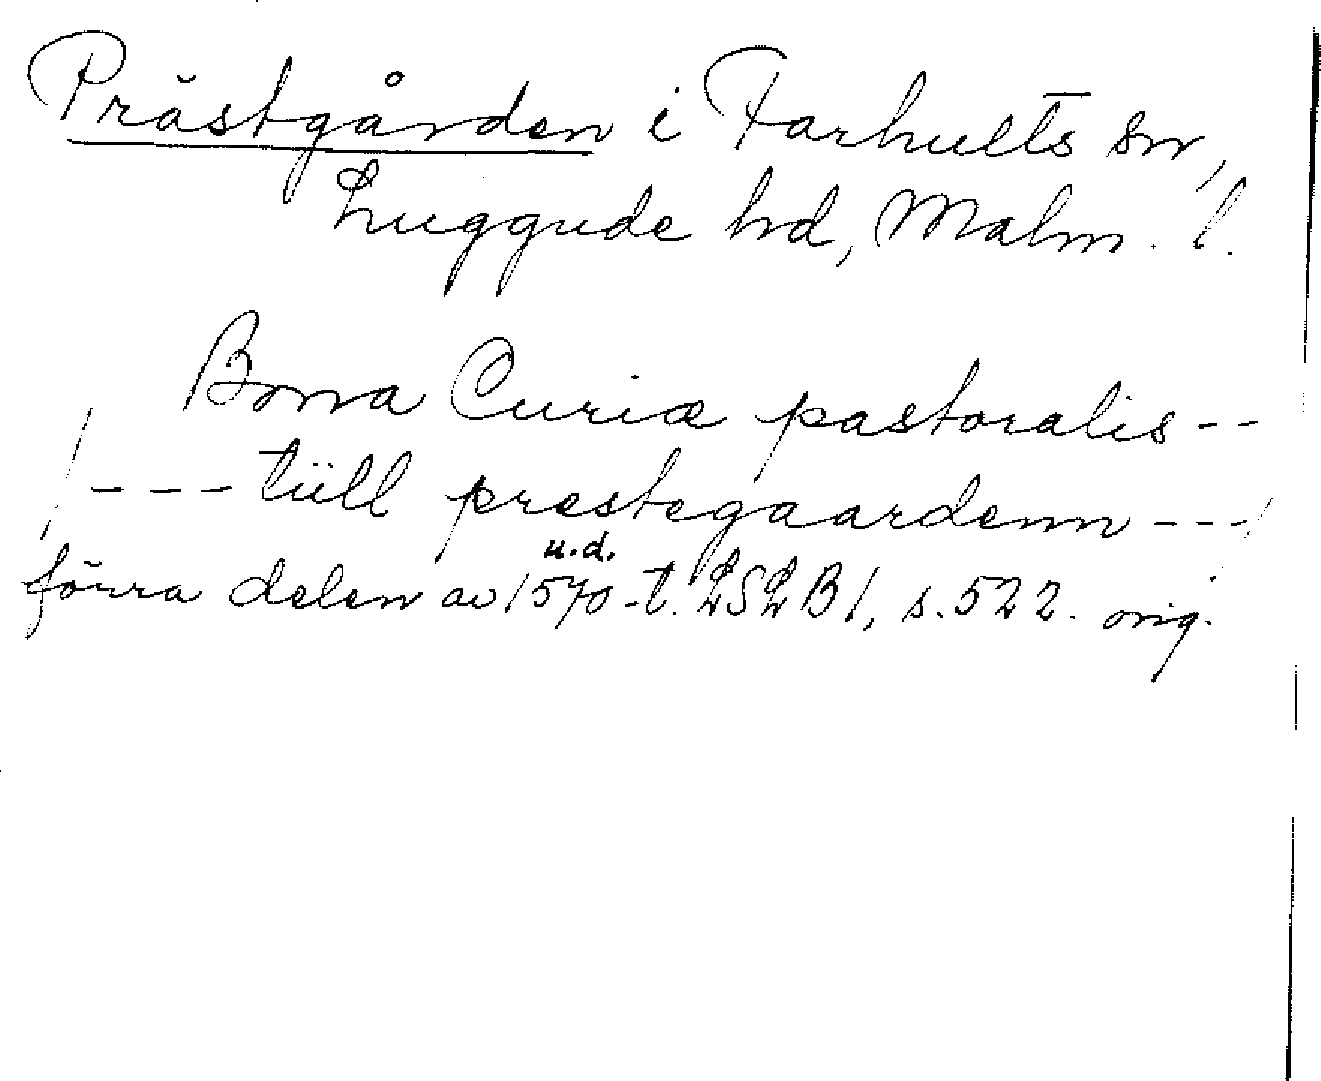 Prästgården i Farhults sn,
Luggude hd, Malm. l.
Bona Curiæ pastoralis --
/ --- tiill prestegaardenn ---/
u.d.
förra delen av 1570-t. LSLB 1, s. 522. orig.